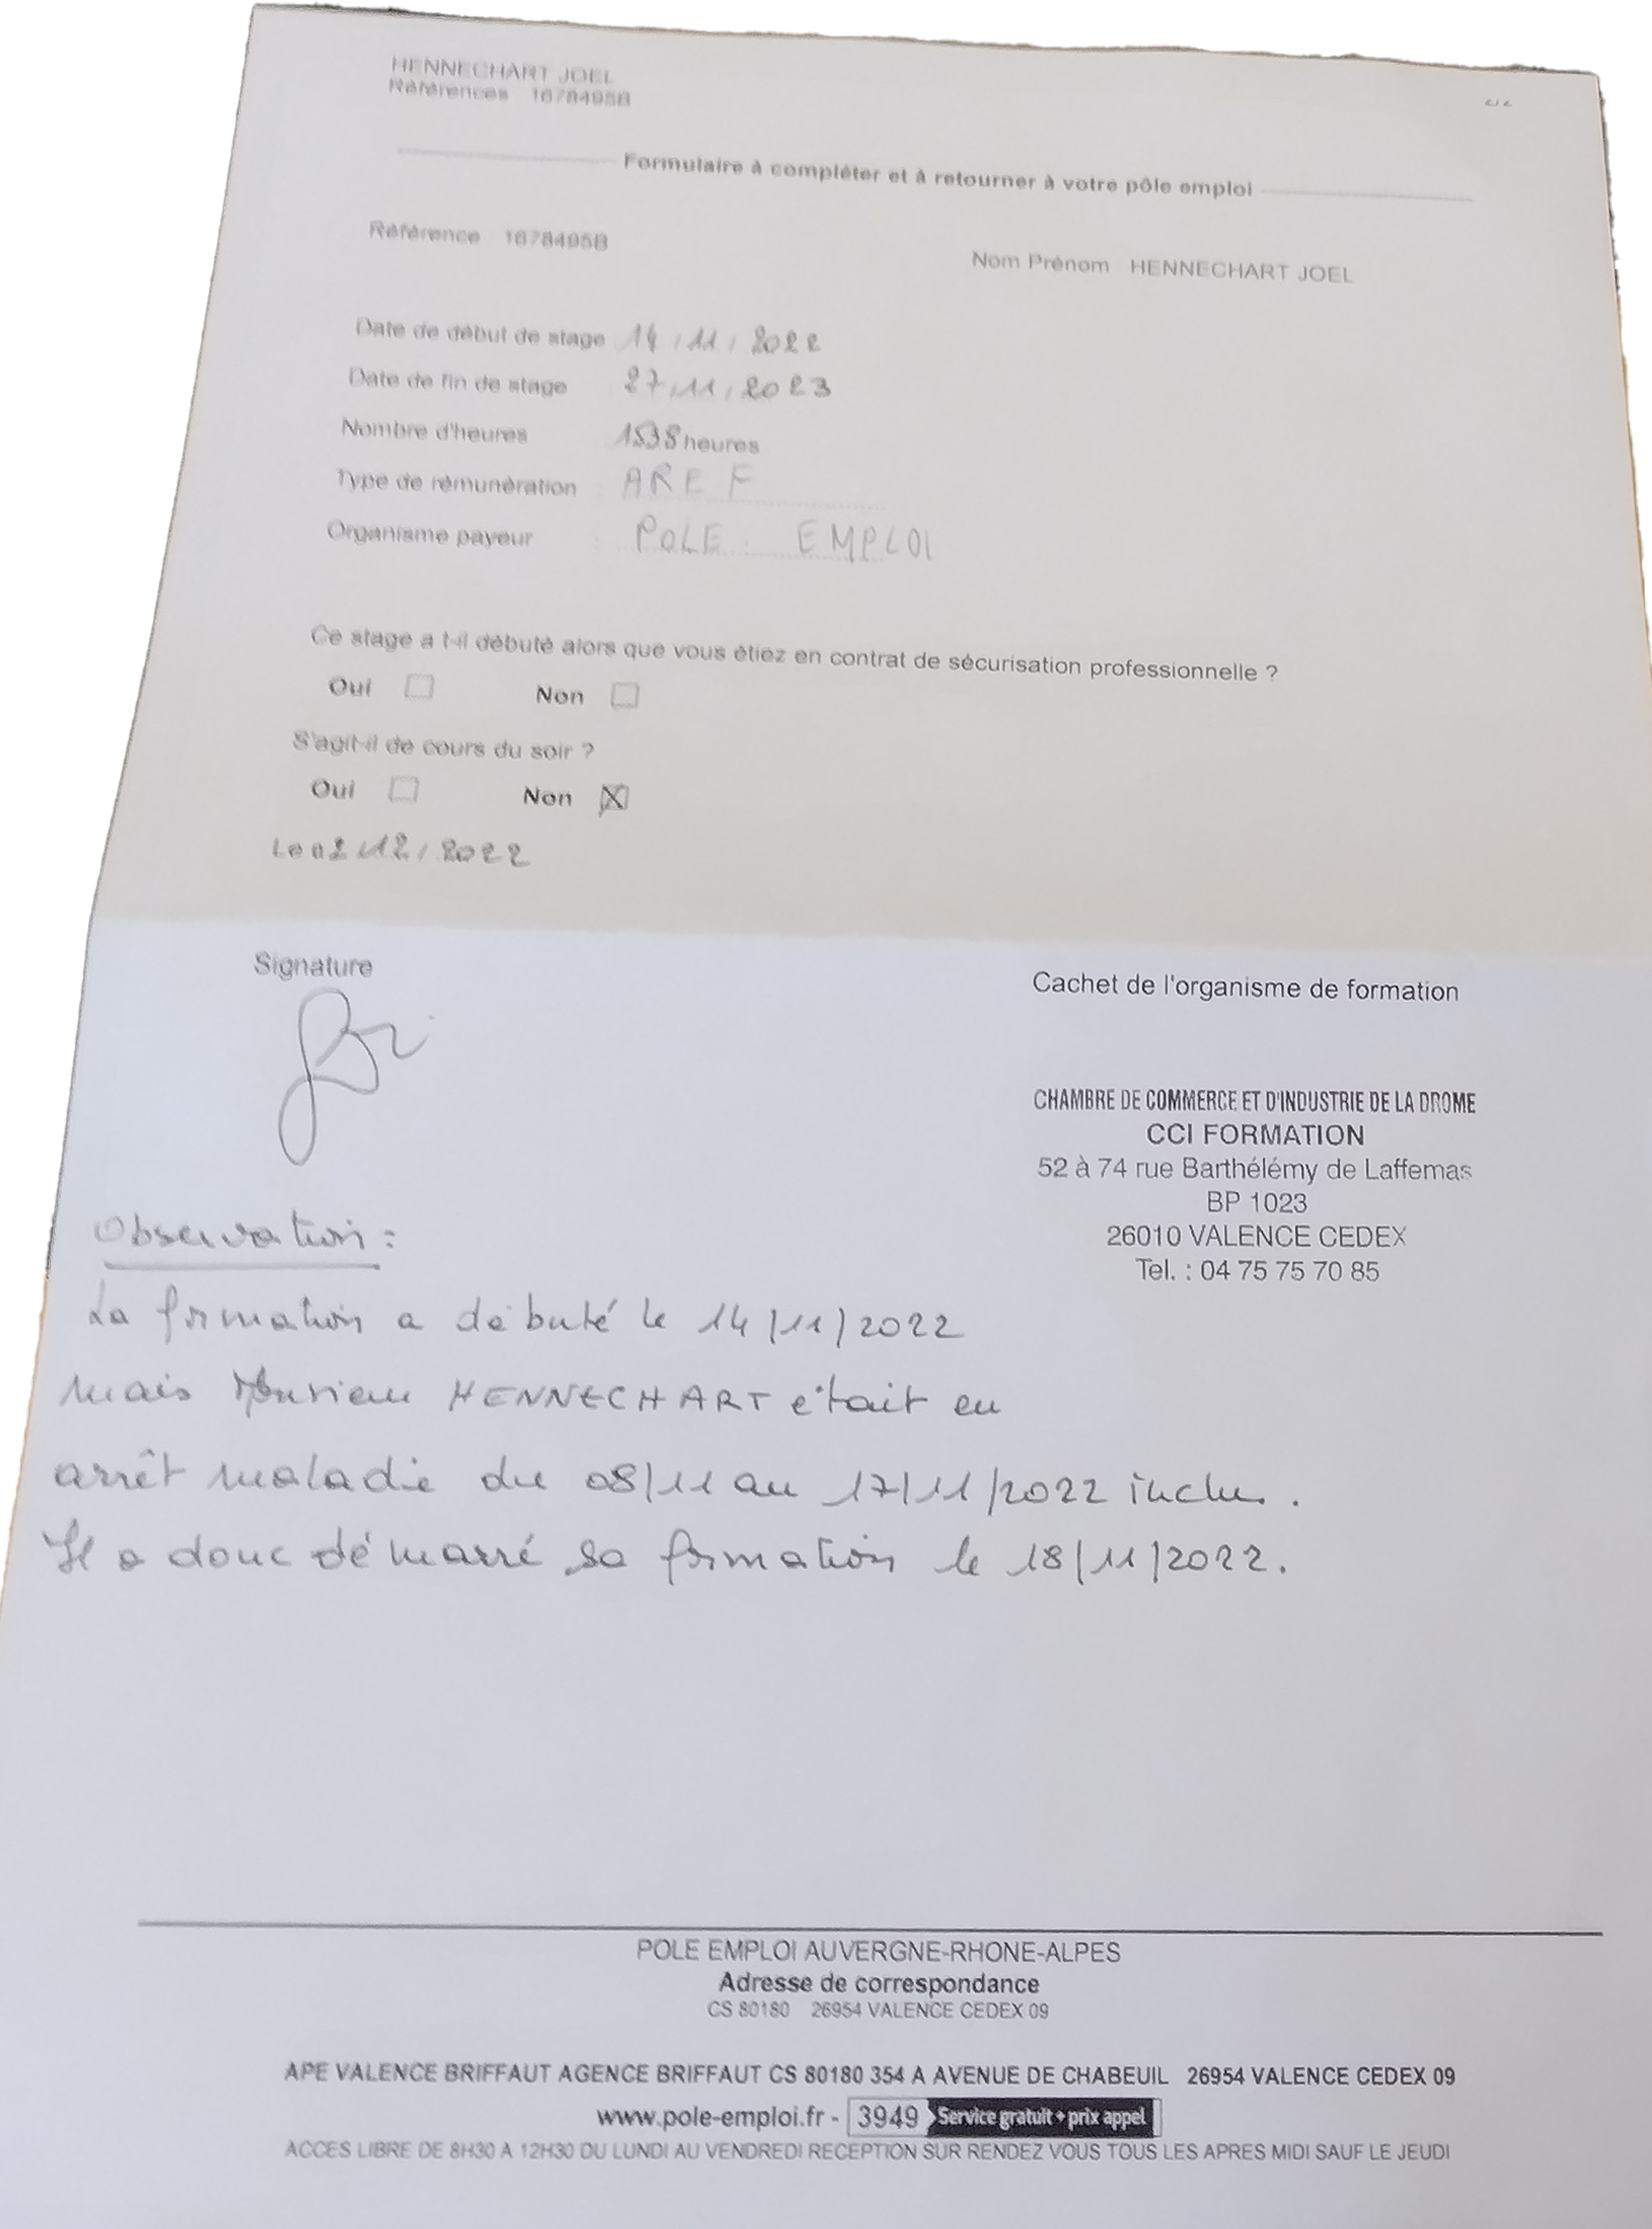 HENNECHART JOEL
Références 1678495B
2/2
Formulaire à compléter et à retourner à votre pôle emploi
Référence 1678495B
Nom Prénom HENNECHART JOEL
Date de début de stage 14/11/2022
Date de fin de stage 27/11/2023
Nombre d'heures 1538 heures
Type de rémunération : AREF
Organisme payeur : POLE EMPLOI
Ce stage a t-il débuté alors que vous étiez en contrat de sécurisation professionnelle ?
Oui Non
S'agit-il de cours du soir ?
Oui Non X
Le 02/12/2022
Signature
Cachet de l'organisme de formation
CHAMBRE DE COMMERCE ET D'INDUSTRIE DE LA DROME
CCI FORMATION
52 à 74 rue Barthélémy de Laffemas
BP 1023
26010 VALENCE CEDEX
Tel. : 04 75 75 70 85
Observation :
La formation a débuté le 14/11/2022
mais Monsieur HENNECHART était en
arrêt maladie du 08/11 au 17/11/2022 inclus.
Il a donc démarré sa formation le 18/11/2022.
POLE EMPLOI AUVERGNE-RHONE-ALPES
Adresse de correspondance
CS 80180 26954 VALENCE CEDEX 09
APE VALENCE BRIFFAUT AGENCE BRIFFAUT CS 80180 354 A AVENUE DE CHABEUIL 26954 VALENCE CEDEX 09
www.pole-emploi.fr - 3949 Service gratuit + prix appel
ACCES LIBRE DE 8H30 A 12H30 DU LUNDI AU VENDREDI RECEPTION SUR RENDEZ VOUS TOUS LES APRES MIDI SAUF LE JEUDI